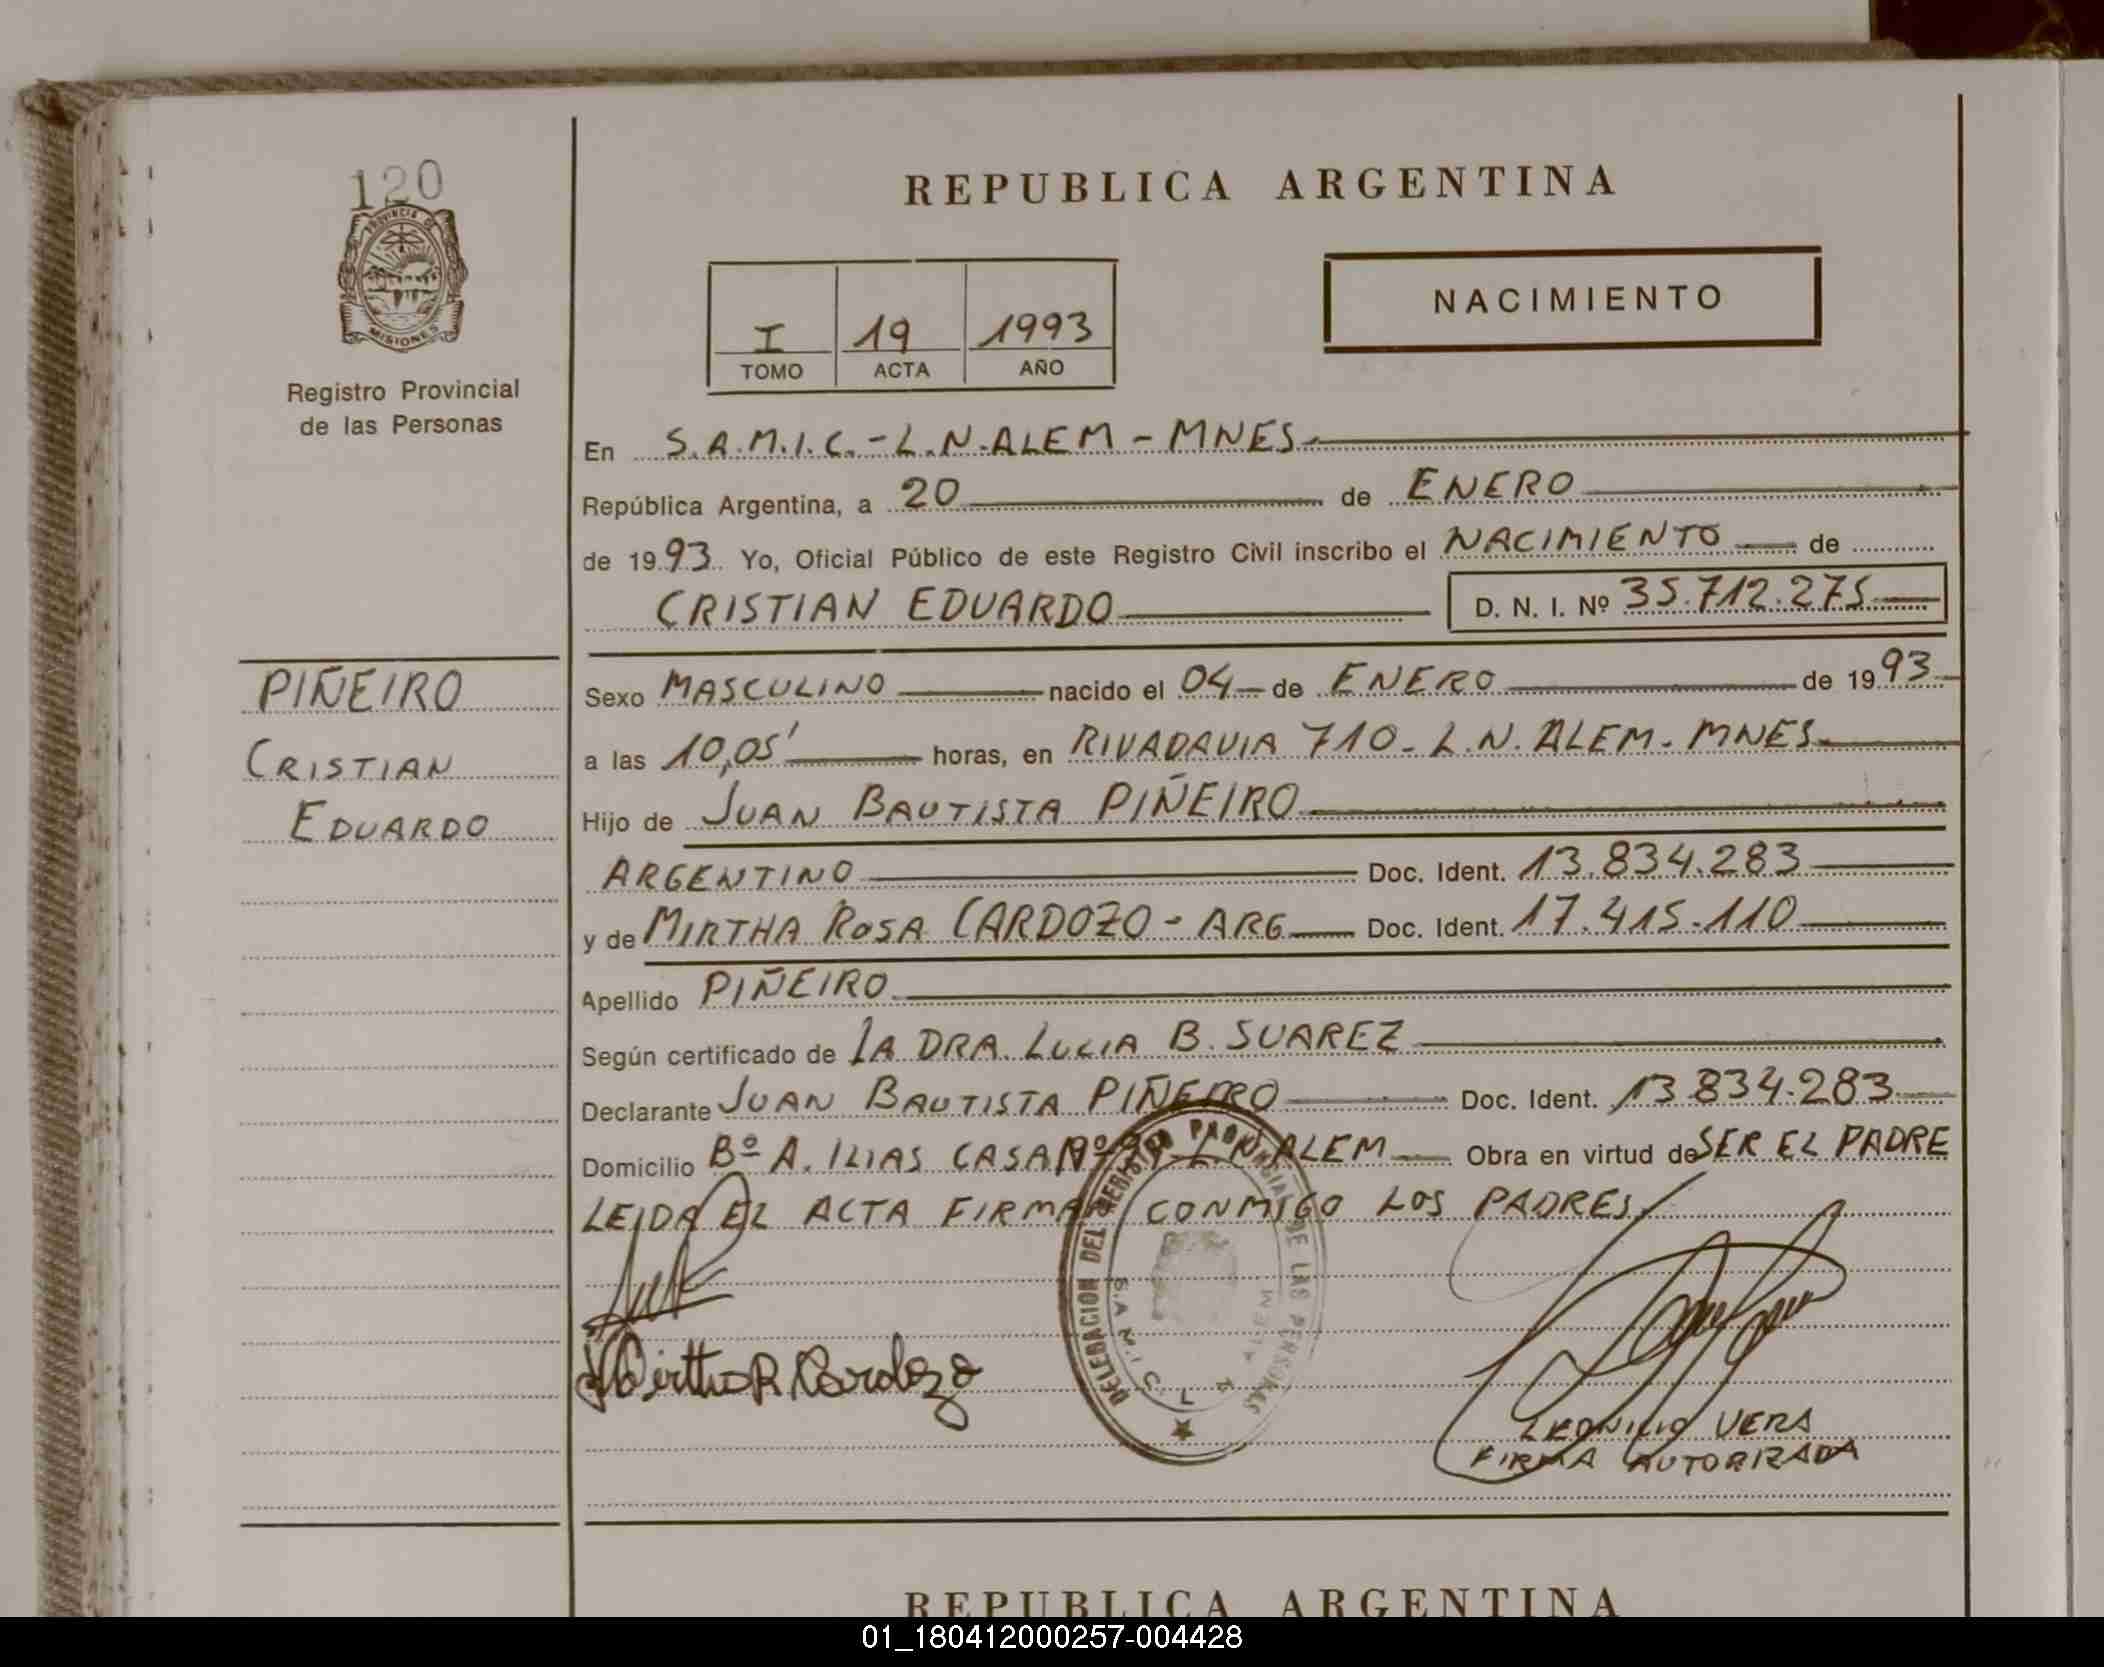 120
PROVINCIA DE
MISIONES
Registro Provincial
de las Personas
REPUBLICA ARGENTINA
I 19 1993
TOMO ACTA AÑO
NACIMIENTO
En S.A.M.I.C.-L.N.ALEM-MNES
República Argentina, a 20 de ENERO
de 1993 Yo, Oficial Público de este Registro Civil inscribo el NACIMIENTO de
CRISTIAN EDUARDO D. N. I. Nº 35.712.275
PIÑEIRO
CRISTIAN
EDUARDO
Sexo MASCULINO nacido el 04 de ENERO de 1993
a las 10,05' horas, en RIVADAVIA 710-L.N.ALEM-MNES
Hijo de JUAN BAUTISTA PIÑEIRO
ARGENTINO Doc. Ident. 13.834.283
y de MIRTHA ROSA CARDOZO-ARG Doc. Ident. 17.415.110
Apellido PIÑEIRO
Según certificado de LA DRA. LUCIA B. SUAREZ
Declarante JUAN BAUTISTA PIÑEIRO Doc. Ident. 13.834.283
Domicilio Bº A. ILIAS CASA Nº L.N.ALEM Obra en virtud de SER EL PADRE
LEIDA EL ACTA FIRMAN CONMIGO LOS PADRES
Mirtha R Cardozo
DELEGACION DEL REGISTRO PROVINCIAL DE LAS PERSONAS
S.A.M.I.C. L. N. ALEM
VERA
FIRMA AUTORIZADA
REPUBLICA ARGENTINA
01_180412000257-004428